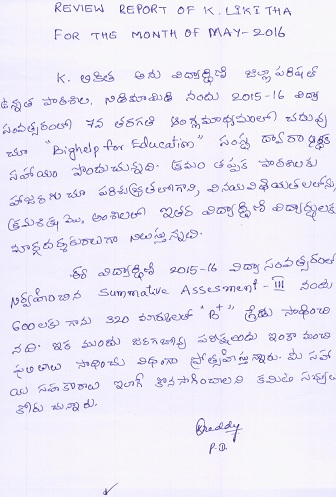 REVIEW REPORT OF K. LIKITHA
FOR THE MONTH OF MAY-2016
K. లికిత అను విద్యార్థిణి జిల్లా పరిషత్
ఉన్నత పాఠశాల, నిడిమామిడి నందు 2015-16 విద్యా
సంవత్సరంలో 7వ తరగతి ఆంగ్లమాధ్యమంలో చదువు
చూ "Bighelp for Education" సంస్థ ద్వారా ఆర్థిక
సహాయం పొందుచున్నది. క్రమం తప్పక పాఠశాలకు
హాజరగుచూ పరిశుభ్రతలోగాని, వినయవిధేయతలలోను,
క్రమశిక్షణ అంశాలలో ఇతర విద్యార్థిణి విద్యార్థులకు
మార్గదర్శకురాలుగా నిలుస్తున్నది.
ఈ విద్యార్థిణి 2015-16 విద్యా సంవత్సరంలో
నిర్వహించిన Summative Assesment - III నందు
600 లకు గాను 320 మార్కులతో "B+" గ్రేడు సాధించి
నది. ఇక ముందు జరగబోవు పరీక్షలందు ఇంకా మంచి
ఫలితాలు సాధించు విధంగా ప్రోత్సహిస్తున్నారు. మీ సహా
య సహకారాలు ఇలాగే కొనసాగించాలని కమిటి సభ్యులు
కోరుచున్నారు.
P.D.